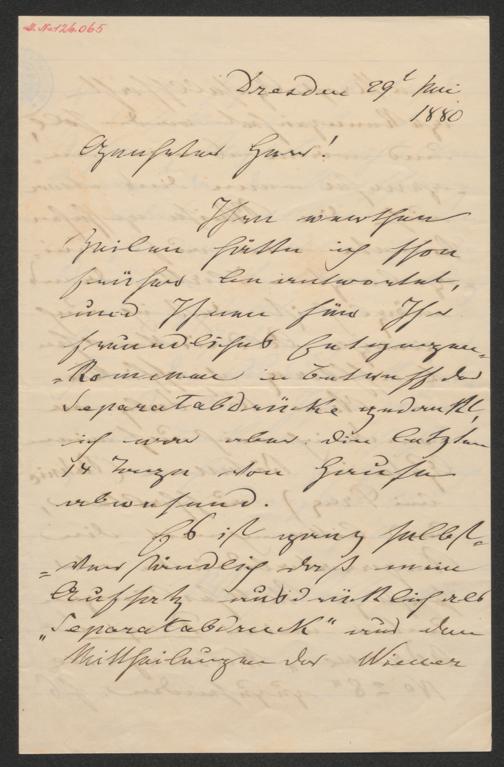 I. N. 126.065
Dresden 29t Mai
1880
Geehrter Herr!
Ihre werthen
Zeilen hätte ich schon
früher beantwortet,
und Ihnen für Ihr
freundliches Entgegen-
-kommen in Betreff der
Separatabdrücke gedankt,
ich war aber die letzten
14 Tage von Hause
abwesend.
Es ist ganz selbst-
=verständlich daß mein
Aufsatz ausdrücklich als
„Separatabdruck" aus den
Mittheilungen der Wiener